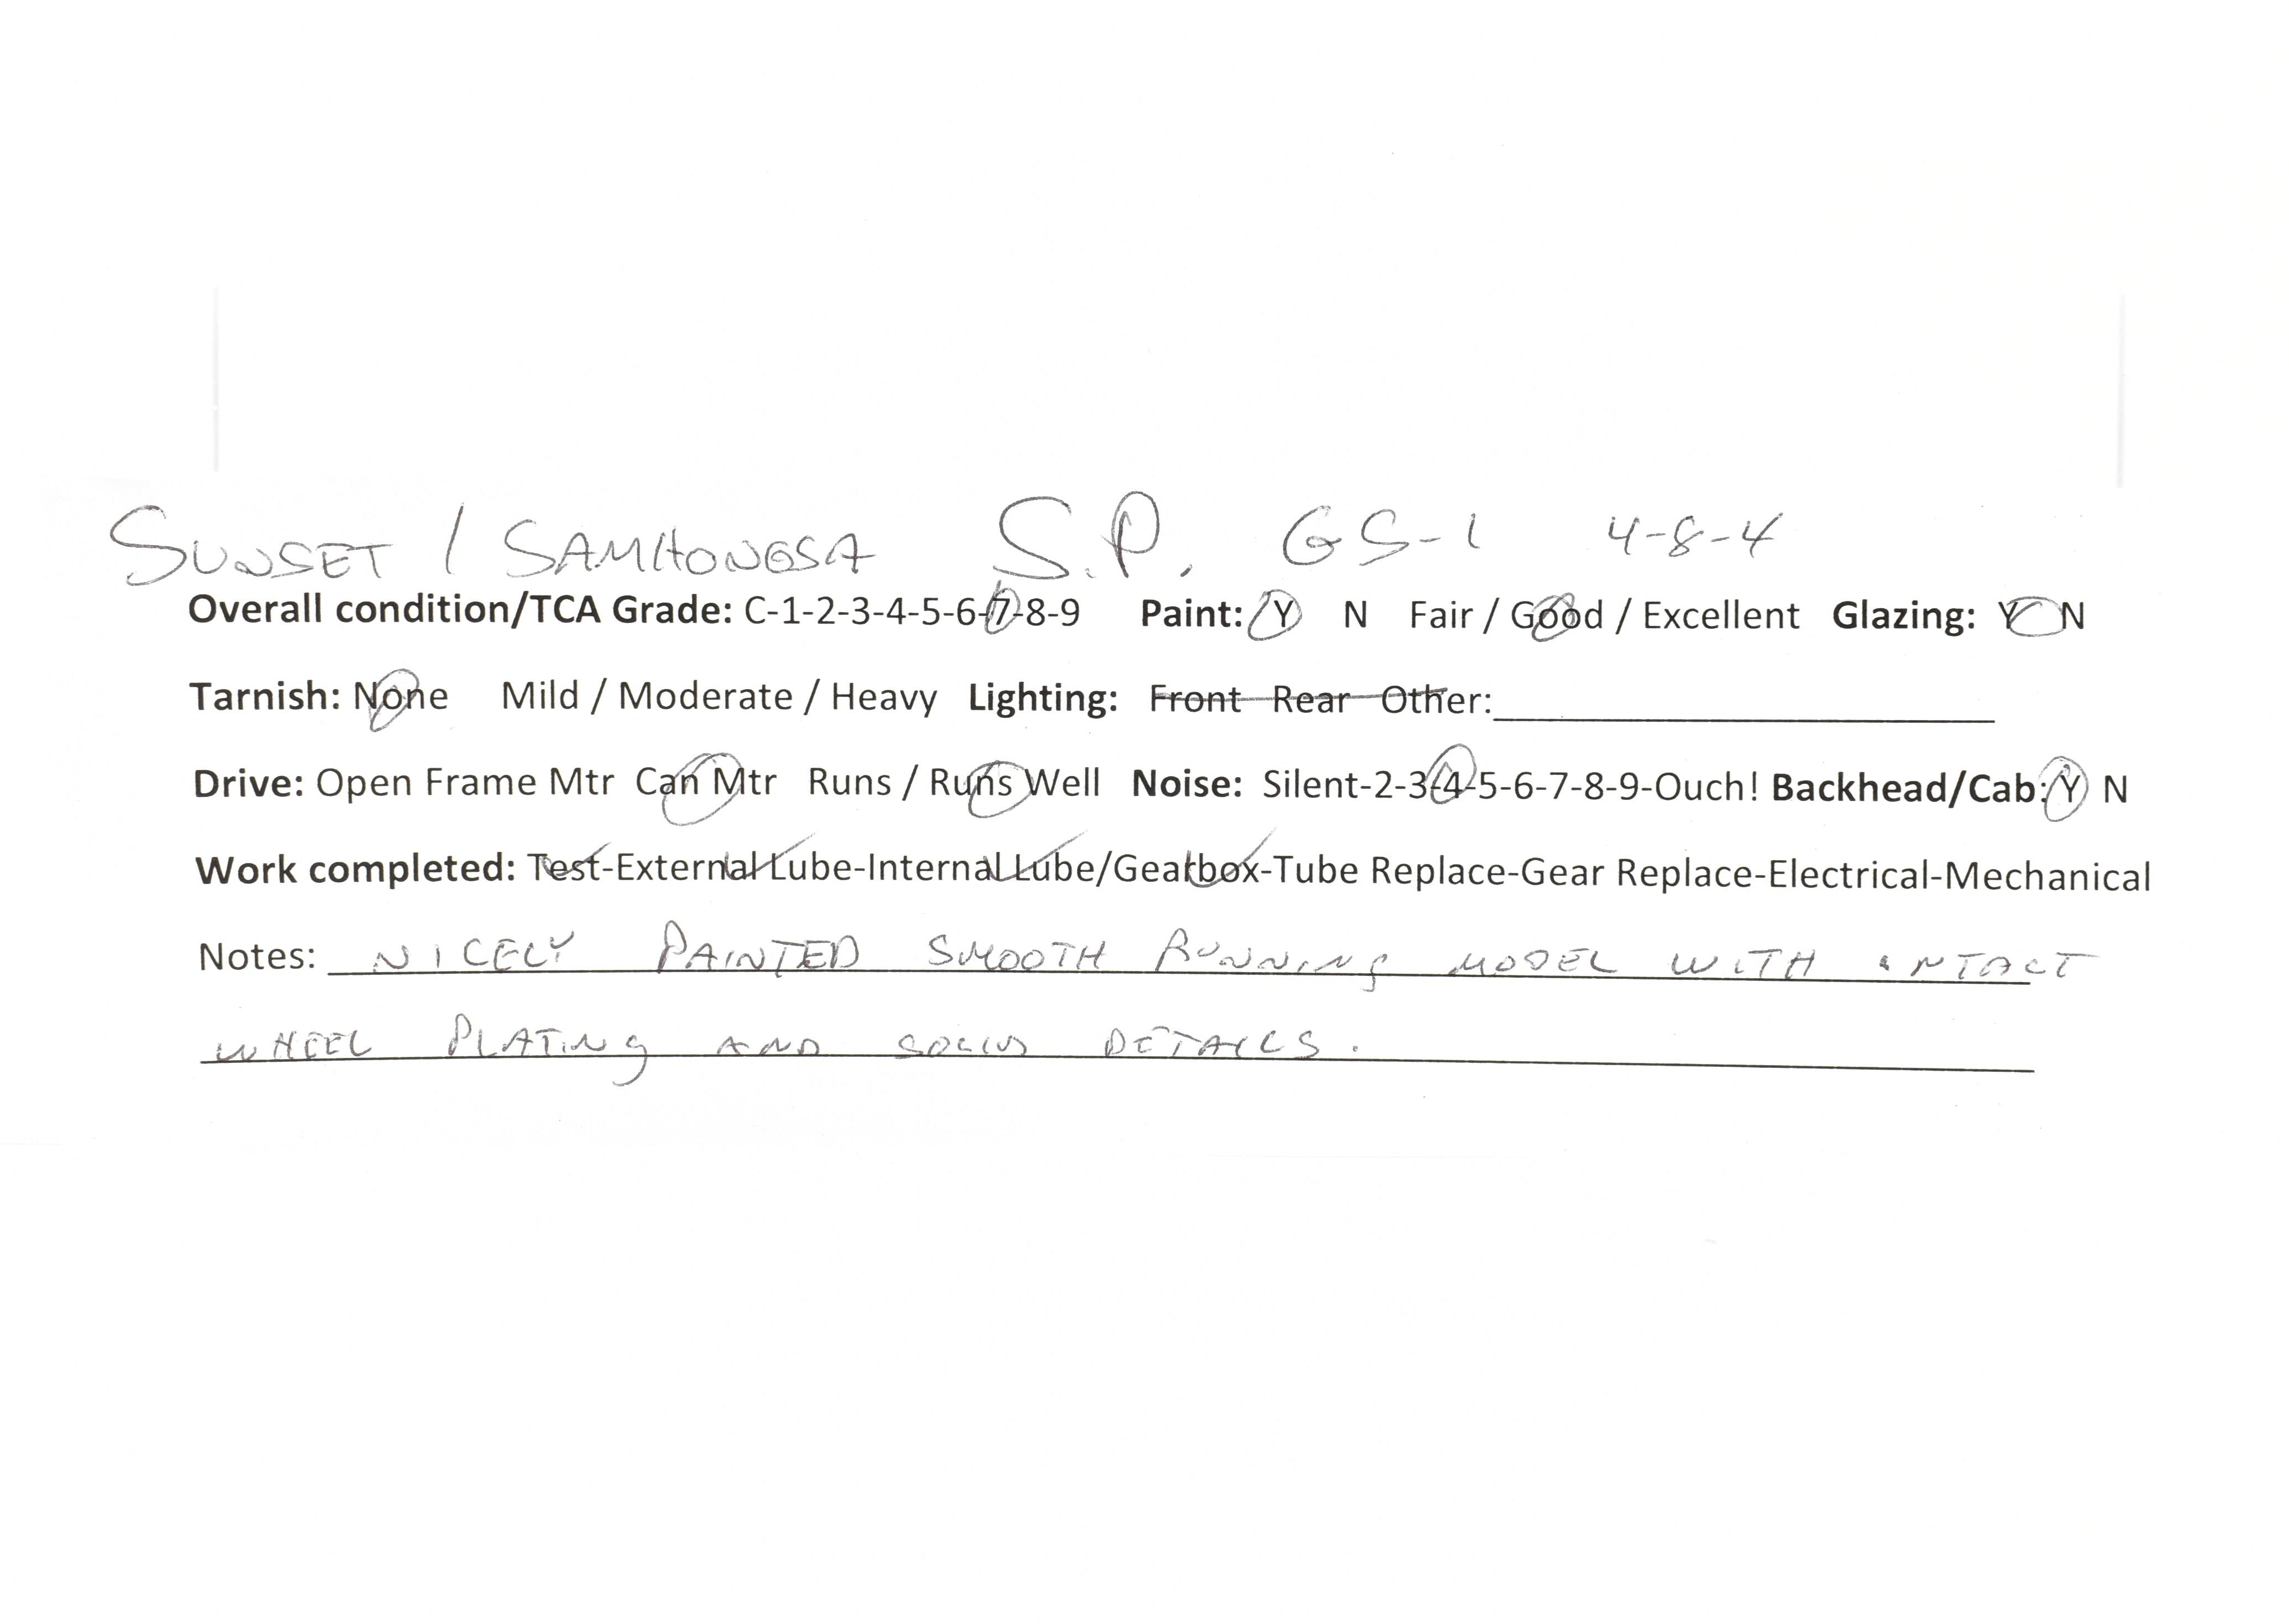 SUNSET / SAMHONGSA S.P. GS-1 4-8-4
Overall condition/TCA Grade: C-1-2-3-4-5-6-7-8-9 Paint: Y N Fair / Good / Excellent Glazing: Y N
Tarnish: None Mild / Moderate / Heavy Lighting: Front Rear Other:
Drive: Open Frame Mtr Can Mtr Runs / Runs Well Noise: Silent-2-3-4-5-6-7-8-9-Ouch! Backhead/Cab: Y N
Work completed: Test-External Lube-Internal Lube/Gearbox-Tube Replace-Gear Replace-Electrical-Mechanical
Notes: NICELY PAINTED SMOOTH RUNNING MODEL WITH INTACT
WHEEL PLATING AND SOLID DETAILS.